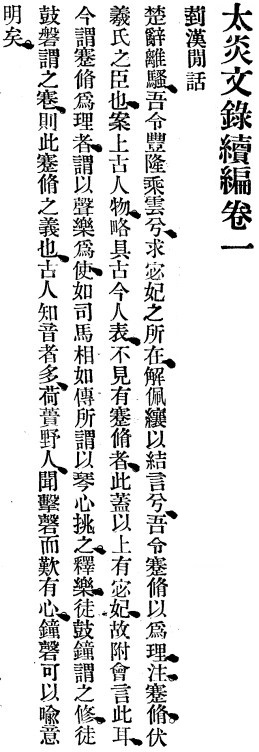 太炎文錄續編卷一
菿漢閒話
楚辭離騷、吾令豐隆乘雲兮、求宓妃之所在、解佩纕以結言兮、吾令蹇脩以爲理、注、蹇脩、伏
羲氏之臣也、案上古人物、略具古今人表、不見有蹇脩者、此蓋以上有宓妃、故附會言此耳、
今謂蹇脩爲理者、謂以聲樂爲使、如司馬相如傳所謂以琴心挑之、釋樂、徒鼓鐘謂之修、徒
鼓磬謂之寋、則此蹇脩之義也、古人知音者多、荷蕢野人、聞擊磬而歎有心、鐘磬可以喩意
明矣、